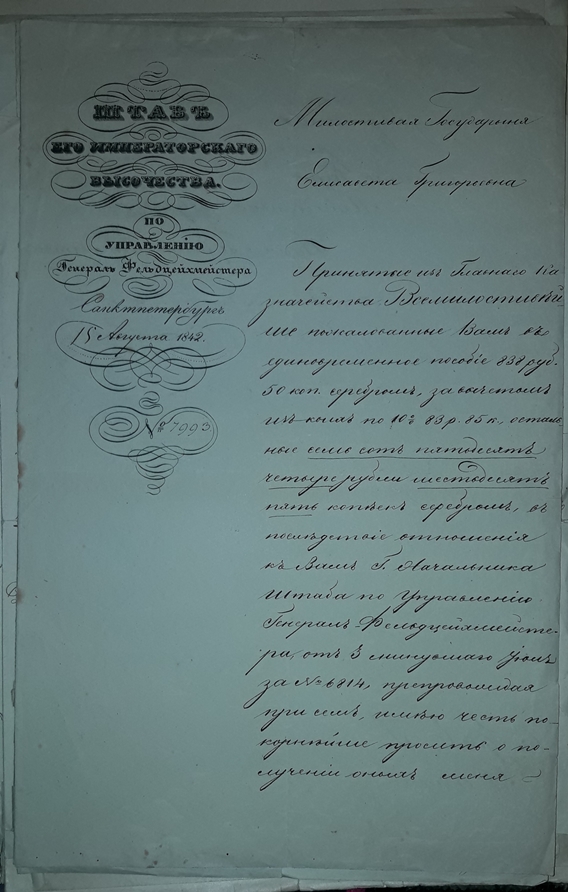 ШТАБЪ
ЕГО ИМПЕРАТОРСКАГО
ВЫСОЧЕСТВА.
ПО
УПРАВЛЕНІЮ
Генералъ Фельдцейхмейстера
Санктпетербургъ
15 Августа 1842.
№ 7993.
Милостивая Государыня
Елисавета Григорьевна
Принятые изъ Главнаго Ка
значейства Всемилостивѣй
ше пожалованные Вамъ въ
единовременное пособіе 838 руб.
50 коп. серебромъ, за вычетомъ
изъ коихъ по 10% 83 р. 85 к., осталь
ные семь сотъ пятьдесятъ
четыре рубли шестьдесятъ
пять копѣекъ серебромъ, въ
послѣдствіе отношенія
къ Вамъ Г. Начальника
Штаба по Управленію
Генералъ-Фельдцейхмейсте-
ра, отъ 3 минувшаго Іюля
за № 6814, препровождая
при семъ, имѣю честь по-
корнѣйше просить о по-
лученіи оныхъ меня